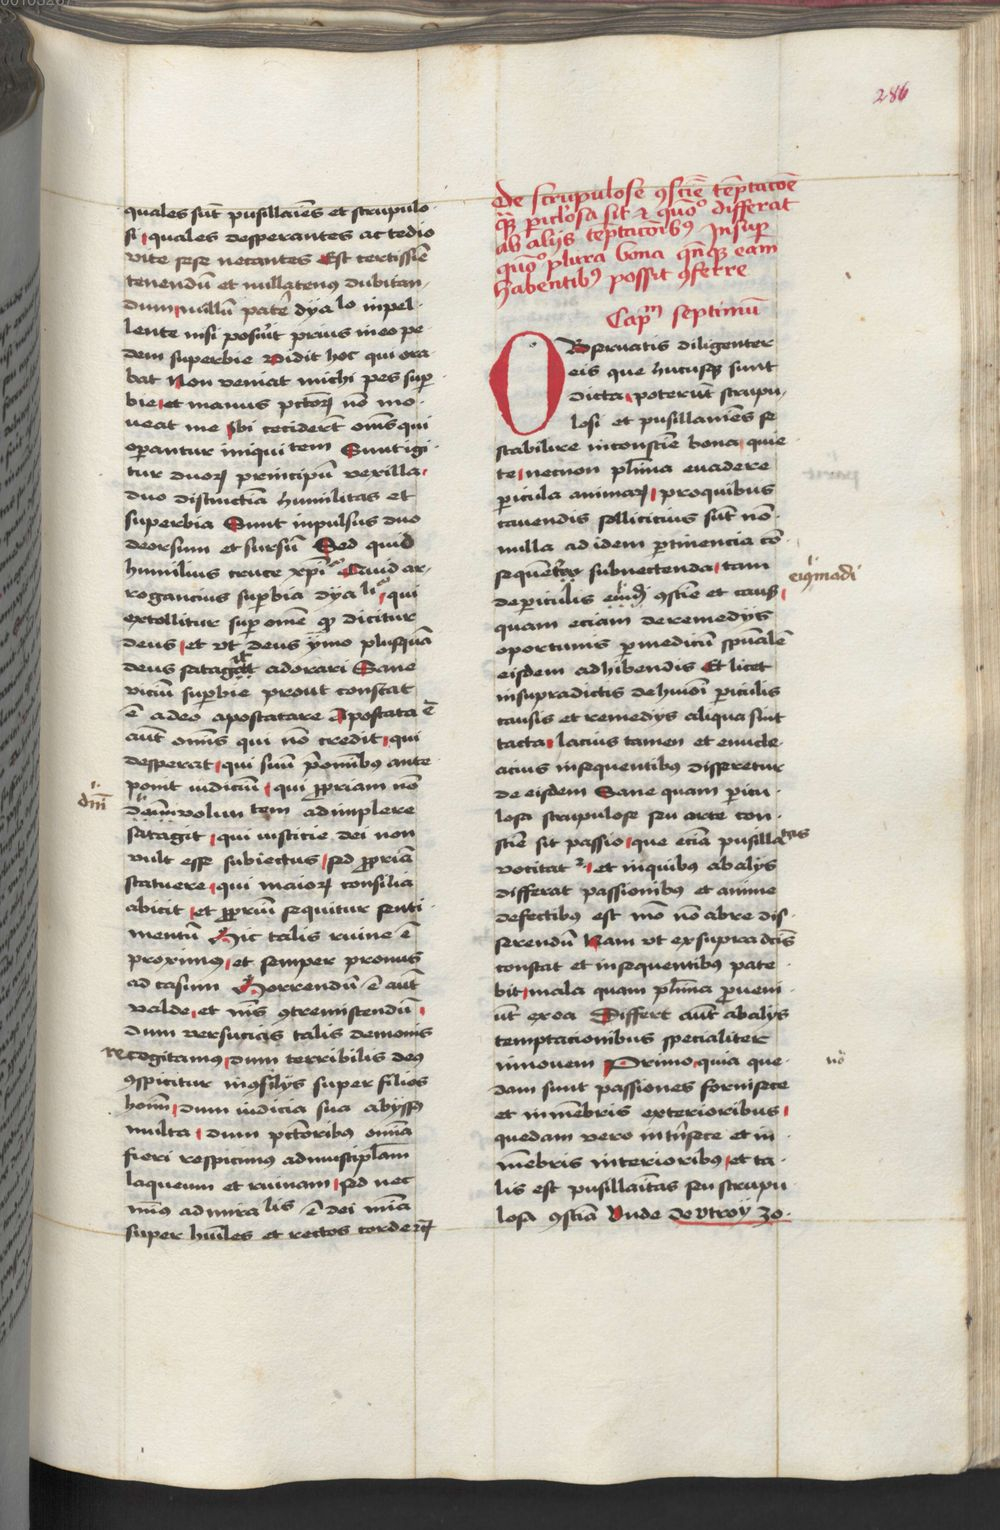 286
quales sūt pusillaīes et scrupulo
si quales desperantes ac tedio
vite sese necantes Est certissīe
tenendū et nullatenus dubitan
dum nullū patēr dyalo inpel
lente nisi posuīt prius in eo pe
dem superbie Vidit hoc qui ora
bat Non veniat michi pes sup
bie et manus pctoꝝ nō mo
ueat me Ibi ceciderūt om̄s qui
operantur iniquitem Sunt igi
tur duoꝝ principū vexilla
duo distinctīa humilitas et
superbia Sunt inpulsus duo
deorsum et sursū Sed quid
humilius cruce xpī Quid ar
rogancius supbia dyali qui
extollitur sup omē qd dicitur
deus et vt deus ymo plusquā
deus satagat adorari Sane
viciū supbie prout constat
ē adeo apostatare Apostata ē
aūt omīs qui nō credit qui
desperat qui suū p̄omībus ante
ponit iudiciū qui ꝓpriam nō
dnī
voluntem adimplere
satagit qui iusticie dei non
vult esse subiectus sed ꝓpriā
statuere qui maioꝝ consilia
abicit et ꝓpriū sequitur senti
mentū Hic talis ruine ē
proximus et semper pronus
ad casum Horrendū ē aūt
valde et nīs ꝯtremiscendū
dum versucias talis demonis
recogitamus dum terribilis deus
ꝯspicitur in ꝯsilijs super filios
hoīm dum iudicia sua abyssus
multa dum pctoribus omīa
fieri respicimus ad muscipulam
laqueum et ruinam sed nec
mīus admiralis ē dei mīa
super huīles et rectos corde etc
De scrupulose ꝯscīe temptacōe
qꝫ piculosa sit et quō differat
ab alijs temptacōibus Insup
quō plura bona qnqꝫ eam
habentibus possit ꝯferre
Capm septimū
OBseruatis diligenter
eis que hucusqꝫ sunt
dicta poterūt scrupu
losi et pusillanimes se
stabilire in conscīe bona quie
te necnon plīma euadere
picula animaꝝ pro quibus
cauendis sollicicius sūt nō
nulla ad idem ptinencia cō
sequēter subnectenda tam
eiꝰmōdi
de piculis ꝯscīe et causis
quam eciam de remedijs
oportunis p medicū spūalē
eisdem adhibendis Et licet
in supradictis de huiōi piculis
causis et remedijs aliqua sint
tacta lacius tamen et enucle
acius in sequentibus disseretur
de eisdem Sane quam picu
losa scrupulose seu arte con
scīe sit passio que eciā pusillaītas
vocitat et in quibus ab alijs
differat passionibus et anime
defectibus est mō nō abre dis
serendū Nam vt ex supra dcīs
constat et in sequentibus pate
bit mala quam plīma pueni
ūt ex ea Differt aūt ab alijs
temptacionibus specialiter
in nouem Primo quia que
nō
dam sunt passiones forinsece
et in mēbris exterioribus
quedam vero intrīsece et in
mēbris interioribus et ta
lis est pusillaītas seu scrupu
losa ꝯscīa Vnde